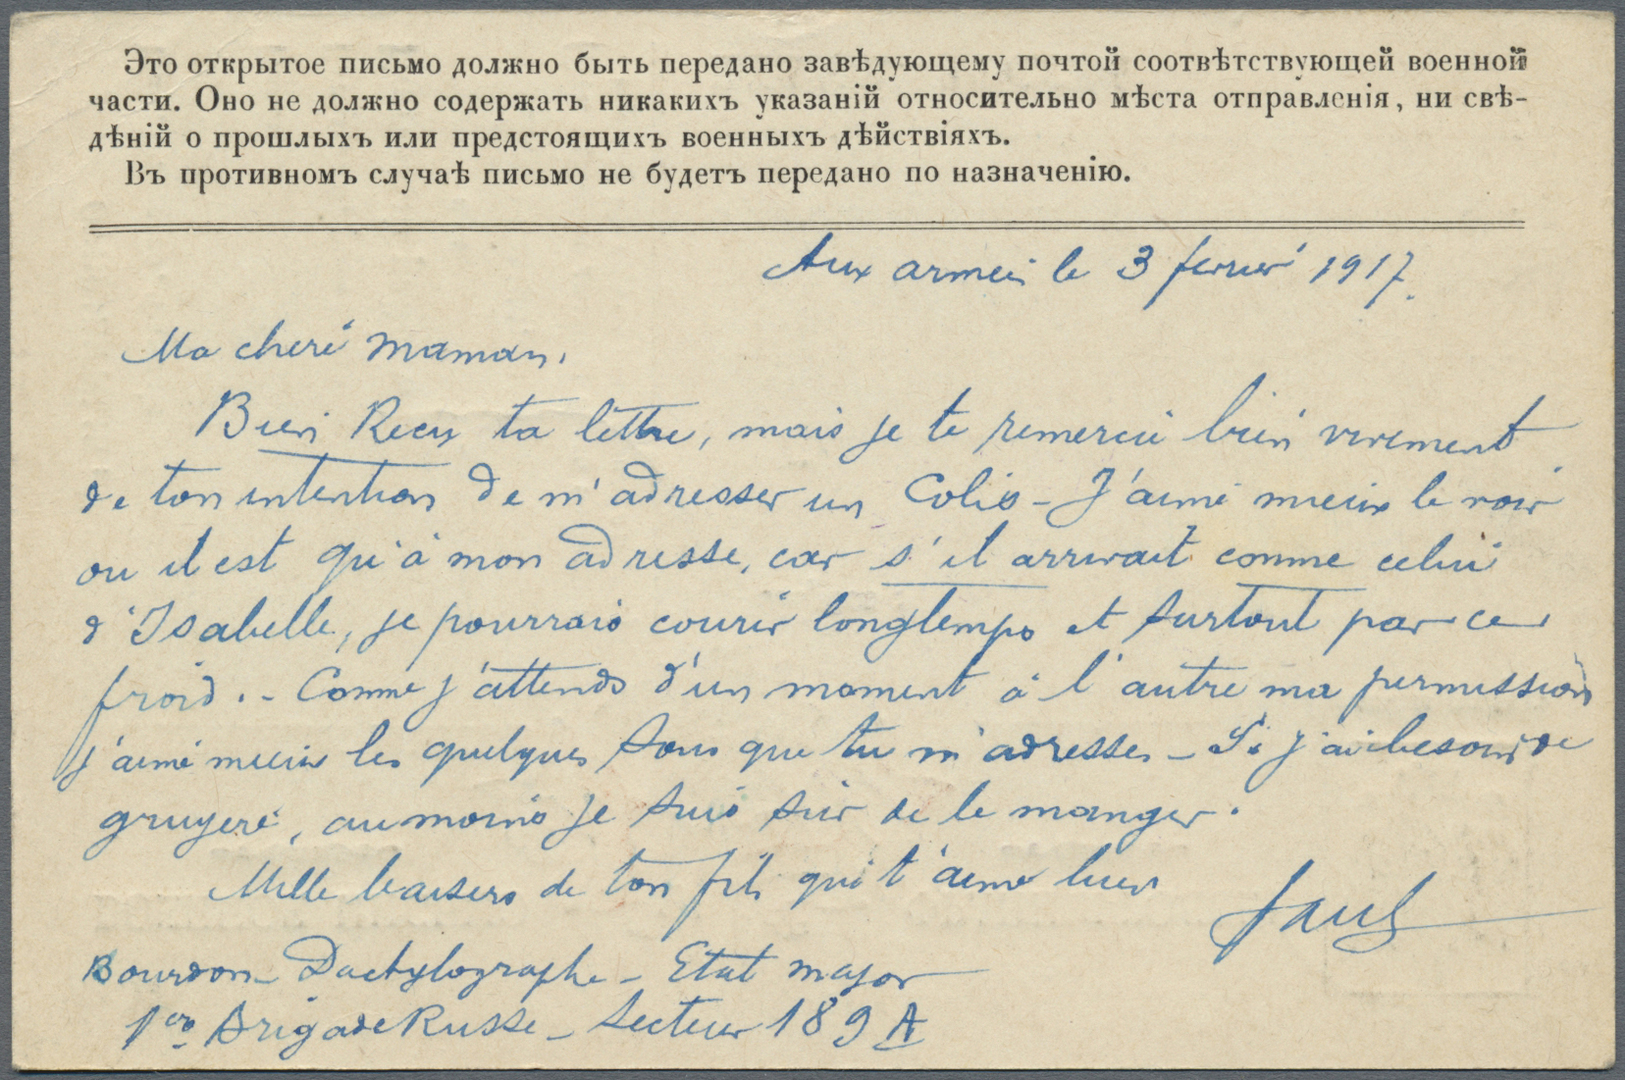 Это открытое письмо должно быть передано завѣдующему почтой соотвѣтствующей военной
части. Оно не должно содержать никакихъ указаній относительно мѣста отправленія, ни свѣ-
дѣній о прошлыхъ или предстоящихъ военныхъ дѣйствіяхъ.
Въ противномъ случаѣ письмо не будетъ передано по назначенію.
Aux armées le 3 fevrier 1917.
Ma cheré maman.
Bien Recu ta lettre, mais je te remercie bien vivement
de ton intention de m'adresser un Colis - J'aime mieux le voir
ou il est qu'à mon adresse, car s'il arrivait comme celui
d'Isabelle, je pourrais courir longtemps et surtout par ce
froid. - Comme j'attends d'un moment à l'autre ma permission
j'aime mieux les quelques sous que tu m'adresses - Si j'ai besoin de
gruyere, au moins je suis sûr de le manger.
Mille baisers de ton fils qui t'aime bien
Paul
Bourdon - Dactylographe - Etat major
1ère Brigade Russe - Secteur 189 A